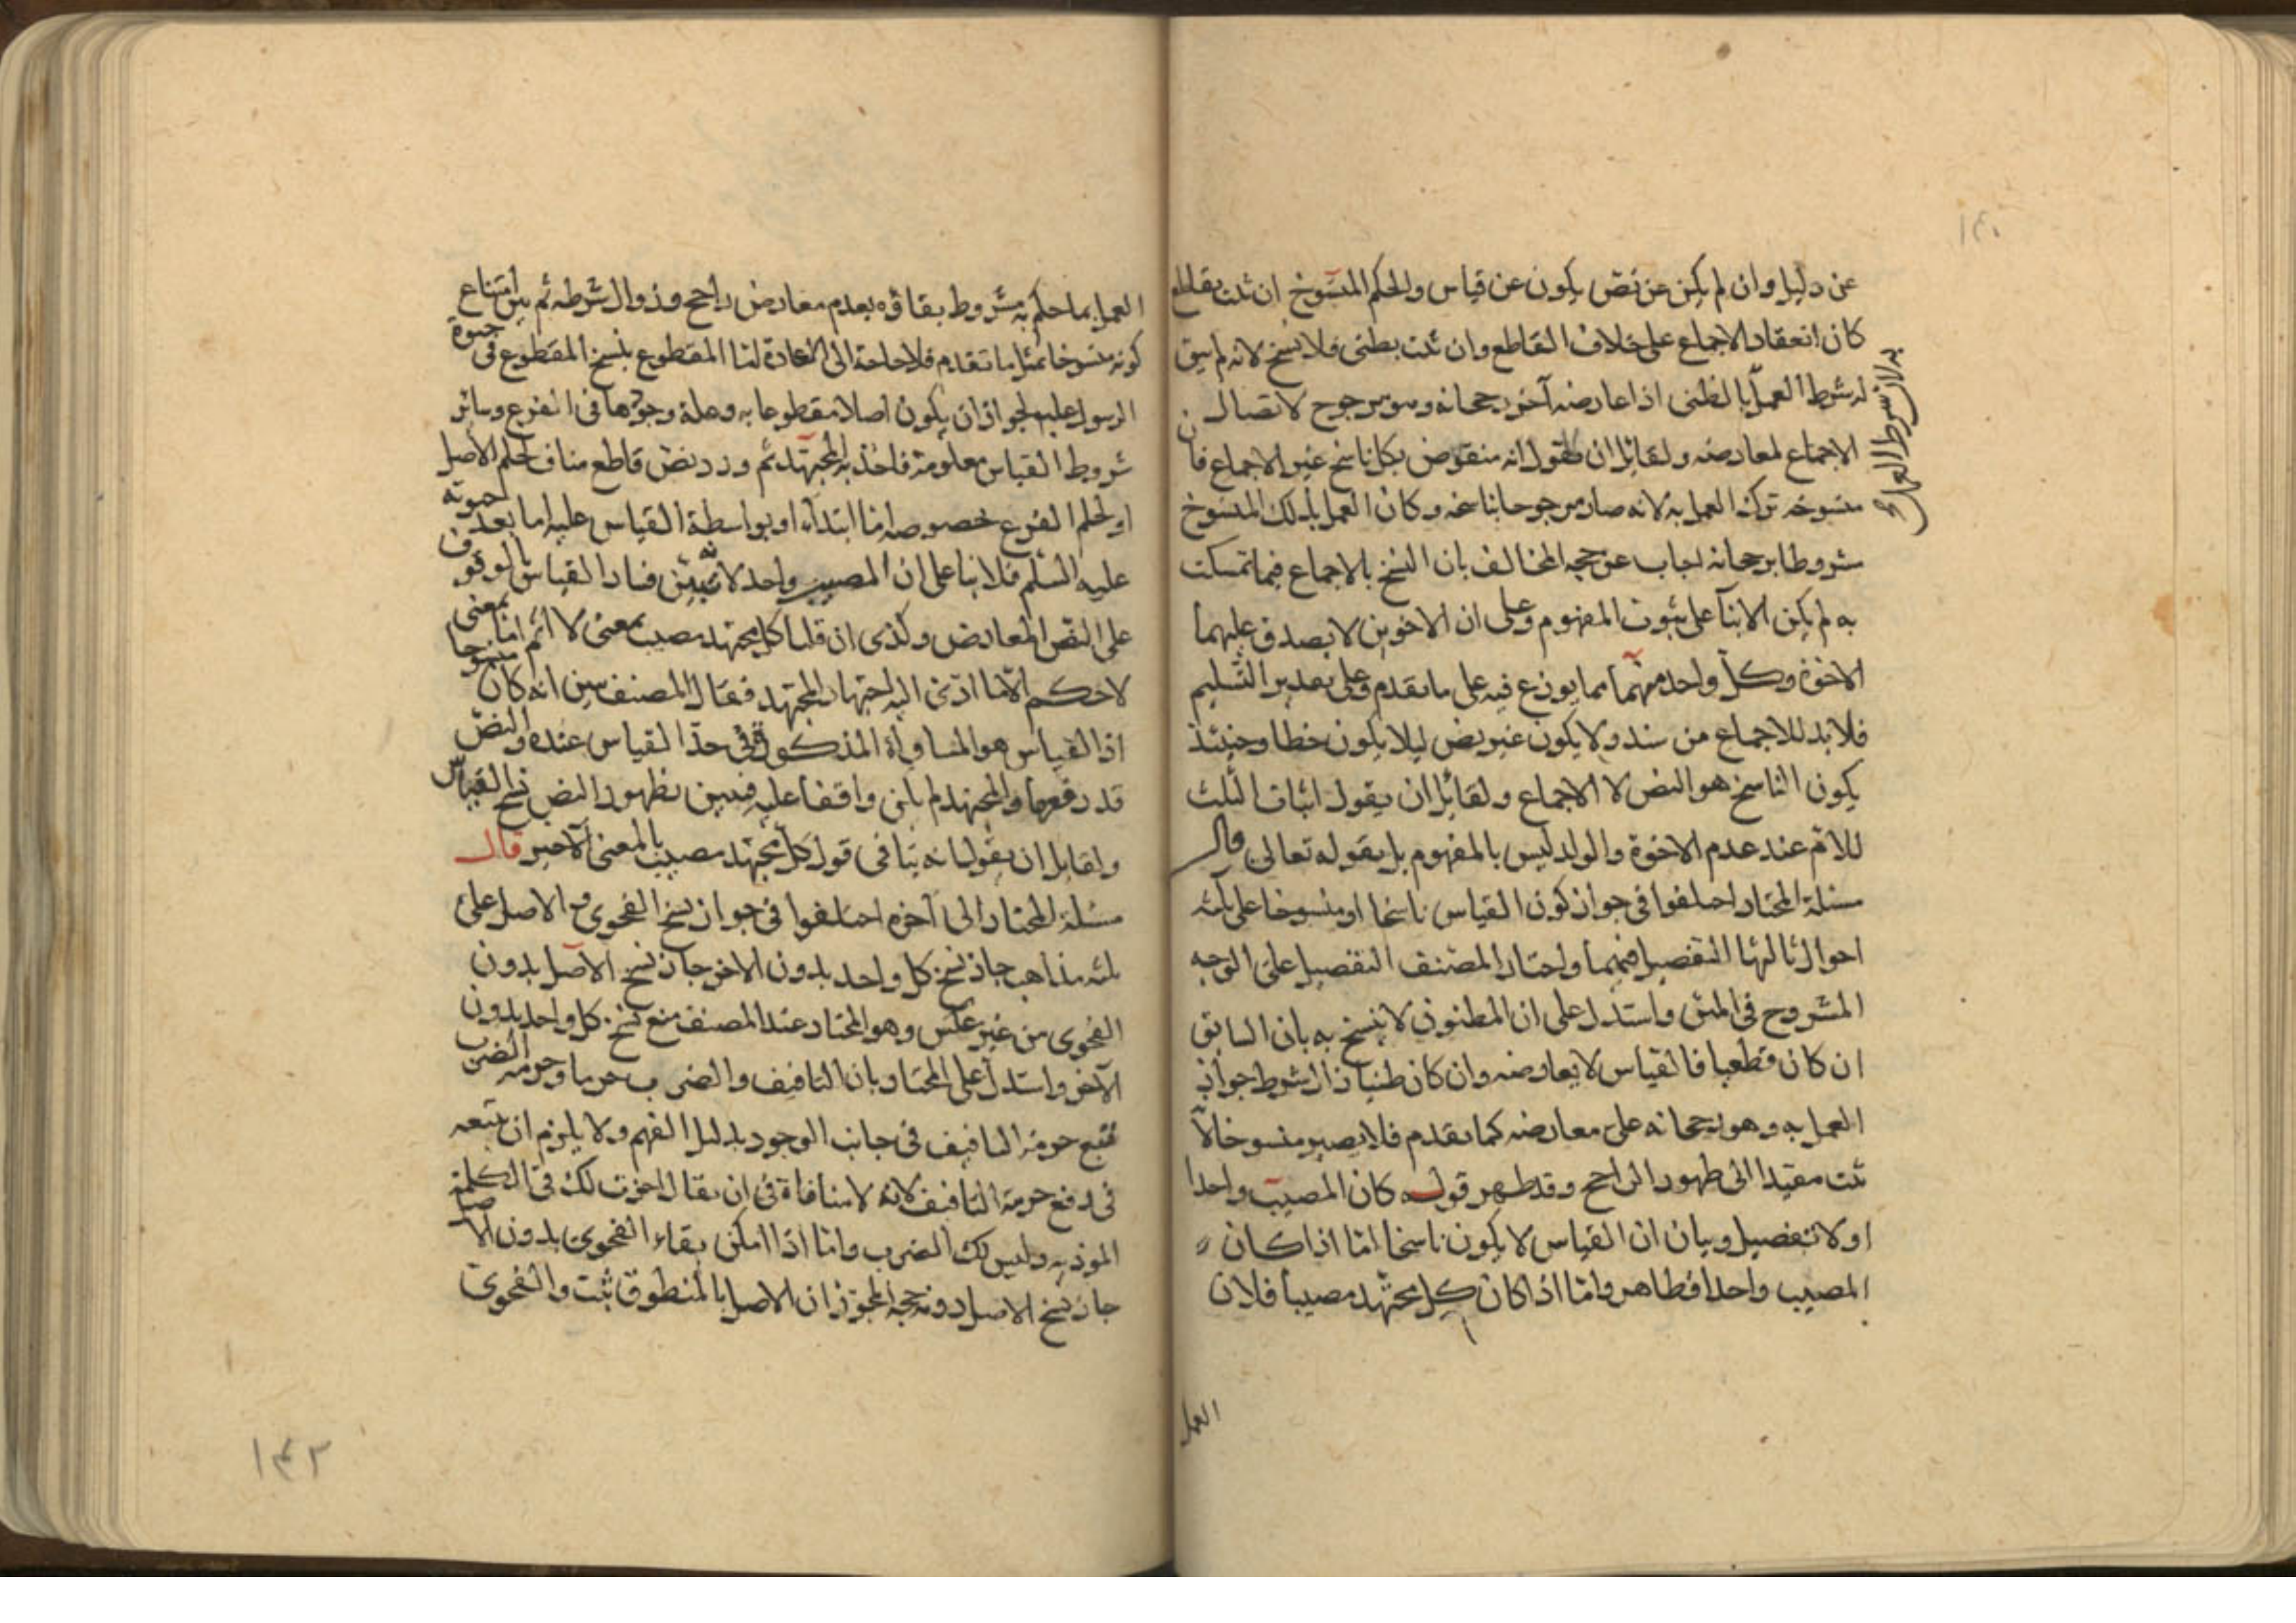 عن دليل وان لم يكن عن نص يكون عن قياس والحكم المنسوخ ان ثبت بقاطع
كان انعقاد الاجماع على خلاف القاطع وان ثبت بظنى فلا نسخ لانه لم يبق
له شرط العمل بالظنى اذا عارضه آخر رجحانه وهو مرجوح لاتصال
الاجماع لمعارضه ولقائل ان يقول انه منقوض بكل ناسخ غير الاجماع فان
منسوخه ترك العمل به لانه صار مرجوحا بناسخه وكان العمل بذلك المنسوخ
مشروطا برجحانه اجاب عن حجه المخالف بان النسخ بالاجماع فيما تمسكت
به لم يكن الا بنآ على ثبوت المفهوم وعلى ان الاخوين لا يصدق عليهما
الاخوة وكل واحد منهما مما يوزع فيه على ما تقدم وعلى تقدير التسليم
فلا بد للاجماع من سند ولا يكون غير نص ليلا يكون خطا وحينئذ
يكون الناسخ هو النص لا الاجماع ولقائل ان يقول اثبات الثلث
للام عند عدم الاخوة والولد ليس بالمفهوم بل بقوله تعالى قال
مسئلة المختار اختلفوا فى جواز كون القياس ناسخا او منسوخا على ثلثه
احوال ثالثها التفصيل فيهما واختار المصنف التفصيل على الوجه
المشروح فى المتن واستدل على ان المظنون لا ينسخ به بان السابق
ان كان قطعيا فالقياس لا يعارضه وان كان ظنيا زال شرط جواز
العمل به وهو رجحانه على معارضه كما تقدم فلا يصير منسوخا لا
ثبت مقيدا الى ظهور الراجح وقد ظهر قوله كان المصيب واحدا
او لا تفصيل وبيان ان القياس لا يكون ناسخا اما اذا كان
المصيب واحدا فظاهر واما اذا كان كل مجتهد مصيبا فلان
به لان شرط العمل
العمل
العمل بما حكم به مشروط بقاؤه بعدم معارض راجح وزوال شرطه ثم بين امتناع
كونه منسوخا بمثل ما تقدم فلا حاجة الى الاعادة لنا المقطوع بنسخ المقطوع فى حيوة
الرسول عليه لجواز ان يكون اصلا مقطوعا به وعلة وجوها فى الفرع وسائر
شروط القياس معلومة فاخذ به المجتهد ثم ورد نص قاطع مناف لحكم الاصل
او لحكم الفرع خصوصه اما ابتداء او بواسطة القياس عليه اما بعد حيوته
عليه السلم فلا بنا على ان المصيب واحد لانه تبين فساد القياس بالوقوف
على النص المعارض وكذى ان قلنا كل مجتهد مصيب بمعنى لا اثم اما بمعنى
لا حكم الا ما ادى اليه اجتهاد المجتهد فقال المصنف تبين انه كان منسوخا
اذ القياس هو المساواة المذكورة فى حد القياس عنده والنص
قد رفعها والمجتهد لم يكن واقفا عليه فتبين بظهور النص نسخ القياس
ولقايل ان يقول انه ينافى قول كل مجتهد مصيب بالمعنى الاخير قال
مسئلة المختار الى آخره اختلفوا فى جواز نسخ الفحوى مع الاصل على
ثلثه مذاهب جاز نسخ كل واحد بدون الاخر جاز نسخ الاصل بدون
الفحوى من غير عكس وهو المختار عند المصنف منع نسخ كل واحد بدون
الآخر واستدل على المختار بان التافيف والضرب حرما وحرمه الضرب
تتبع حرمة التافيف فى جانب الوجود بدليل الفهم ولا يلزم ان تتبعه
فى رفع حرمة التافيف لانه لا منافاة فى ان يقال اجزت لك فى الكلمة
الموذيه وليس لك الضرب واما اذا امكن بقاء الفحوى بدون الاصل
جاز نسخ الاصل دونه حجه المجوز ان الاصل بالمنطوق ثبت والفحوى
١٤٢